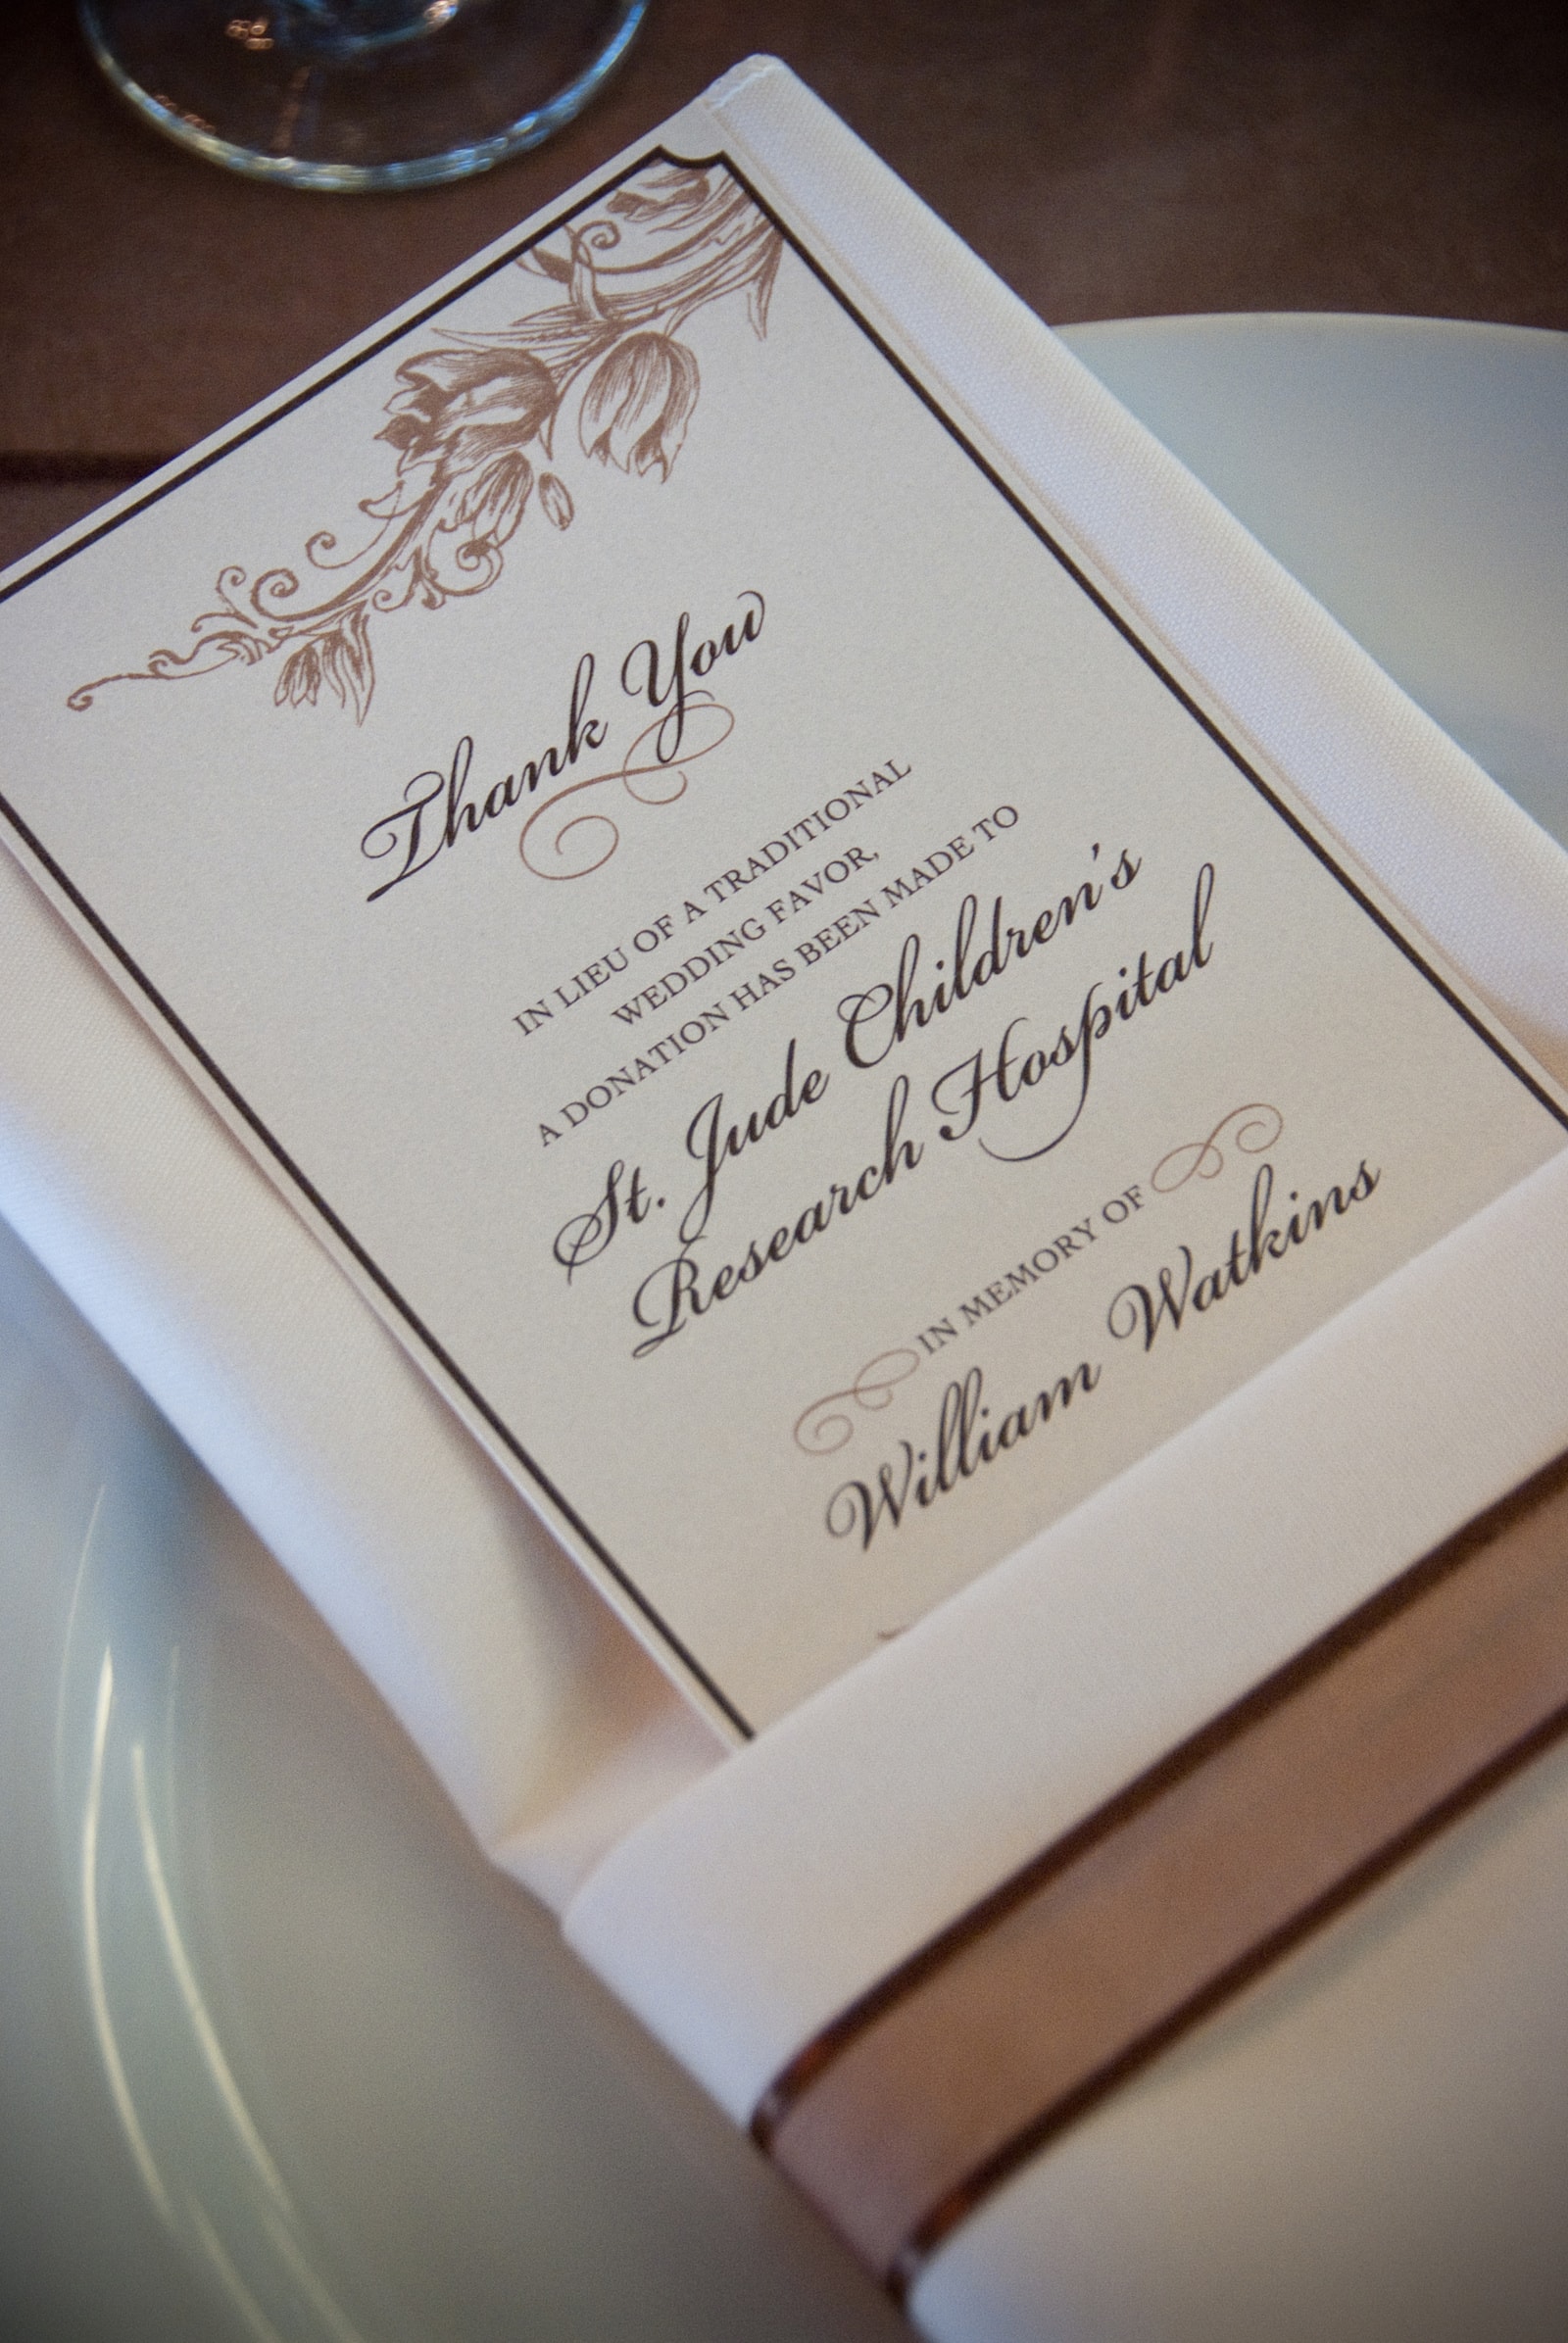 Thank You
IN LIEU OF A TRADITIONAL
WEDDING FAVOR,
A DONATION HAS BEEN MADE TO
St. Jude Children's
Research Hospital
IN MEMORY OF
William Watkins